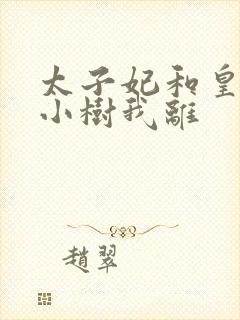 太子妃和皇
小樹我離
趙翠